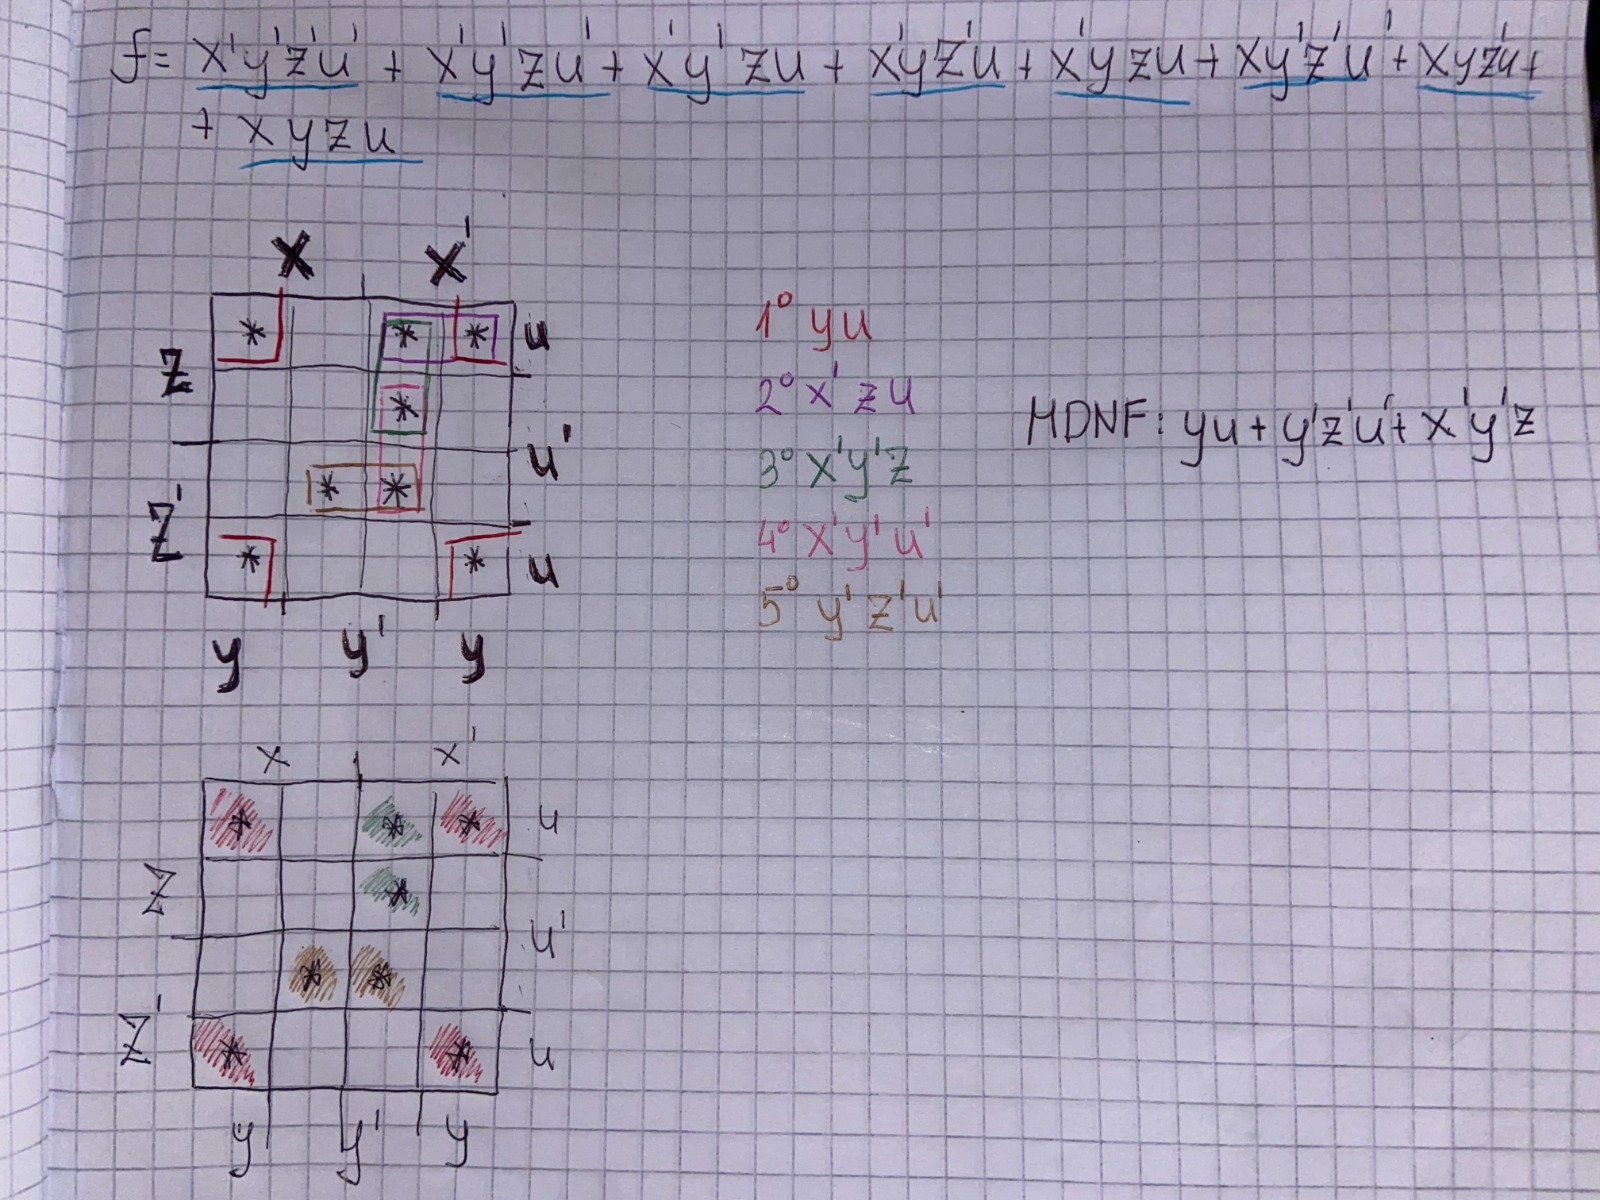 f= x'y'z'u' + x'y'zu' + x'y'zu + x'yz'u + x'yzu + xy'z'u' + xyz'u +
+ xyzu
x x'
z u
u'
z' u
y y' y
1° yu
2° x'zu
3° x'y'z
4° x'y'u'
5° y'z'u'
MDNF: yu + y'z'u' + x'y'z
x x'
u
z
u'
z' u
y y' y